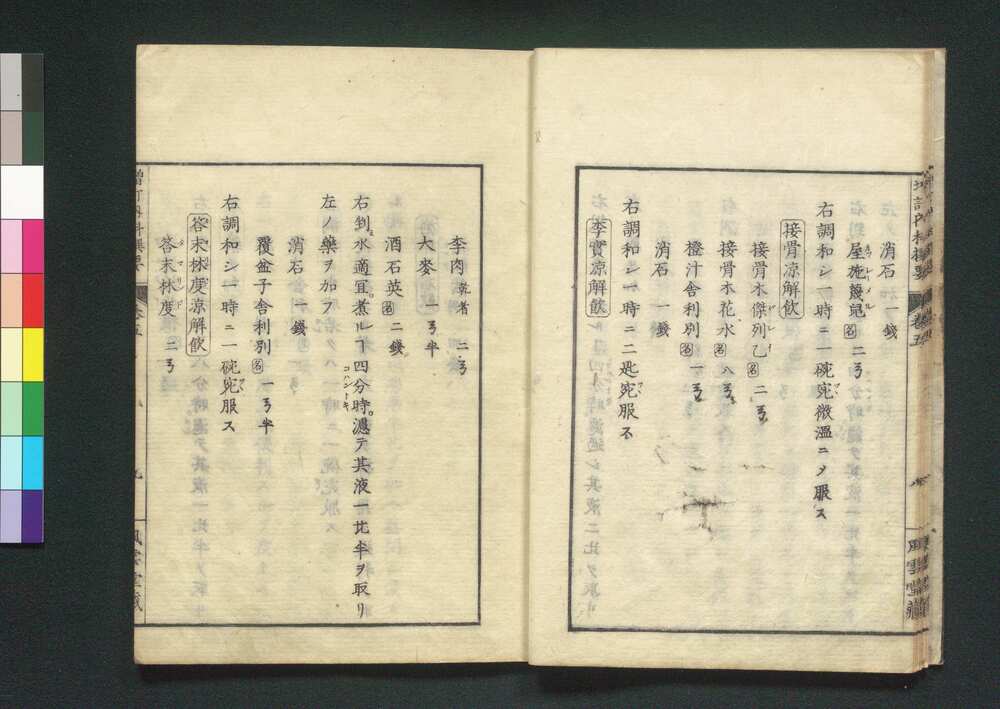 消石 一錢
屋施篾児 名 二ヲ
ヲキシメル
右調和シ一時ニ一碗宛微溫ニノ服ス
接骨凉解飲
接骨木傑列乙 名 二ヲ
接骨木花水 名 八ヲ
橙汁舎利別 名 一ヲ
消石 一錢
右調和シ一時ニ二匙宛服ス
李實凉解飲
李肉 乾者 二ヲ
大麥 一ヲ半
酒石英 名 二錢
右剉水適宜煮ルヿ四分時 濾テ其液一比半ヲ取リ
コハントキ
左ノ藥ヲ加フ
消石 一錢
覆盆子舎利別 名 一ヲ半
右調和シ一時ニ一碗宛服ス
答末林度凉解飲
答末林度 二ヲ
タマリンド
風雲堂藏